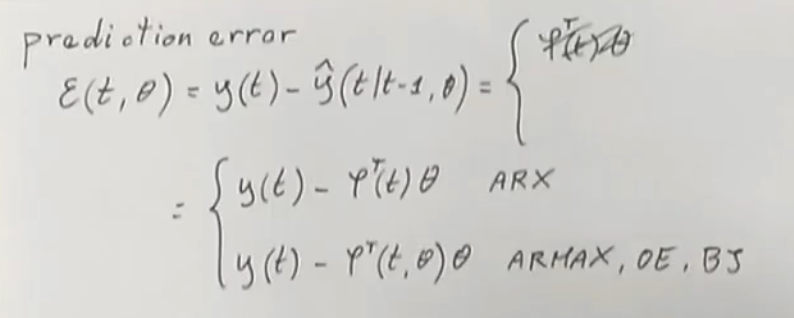 prediction error
ε(t, θ) = y(t) - ŷ(t|t-1, θ) = {
= { y(t) - φᵀ(t) θ ARX
y(t) - φᵀ(t, θ) θ ARMAX, OE, BJ